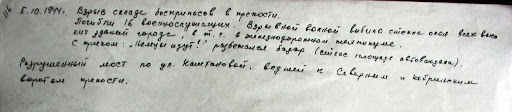 116 5.10.1944г. Взрыв склада боеприпасов в крепости.
Погибли 16 военнослужащих. Взрывной волной выбило стекла окон всех высо
ких зданий города, в т.ч. в железнодорожном техникуме.
С криком: „Немцы идут!" разбежался базар (сейчас площадь автовокзала).
Разрушенный мост по ул. Каштановой, ведшей к Северным и Кобринским
воротам крепости.